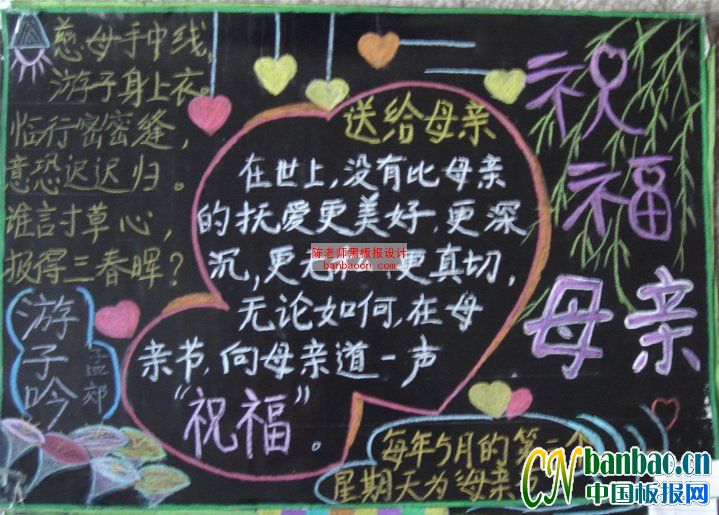 慈母手中线，
游子身上衣。
临行密密缝，
意恐迟迟归。
谁言讨草心，
报得三春晖？
游子吟
孟郊
送给母亲
在世上，没有比母亲
的抚爱更美好，更深
沉，更无 更真切，
无论如何，在母
亲节，向母亲道一声
“祝福”。
祝福
母亲
每年5月的第一个
星期天为母亲
陈老师黑板报设计
banbaocn.com
CN banbao.cn
中国板报网